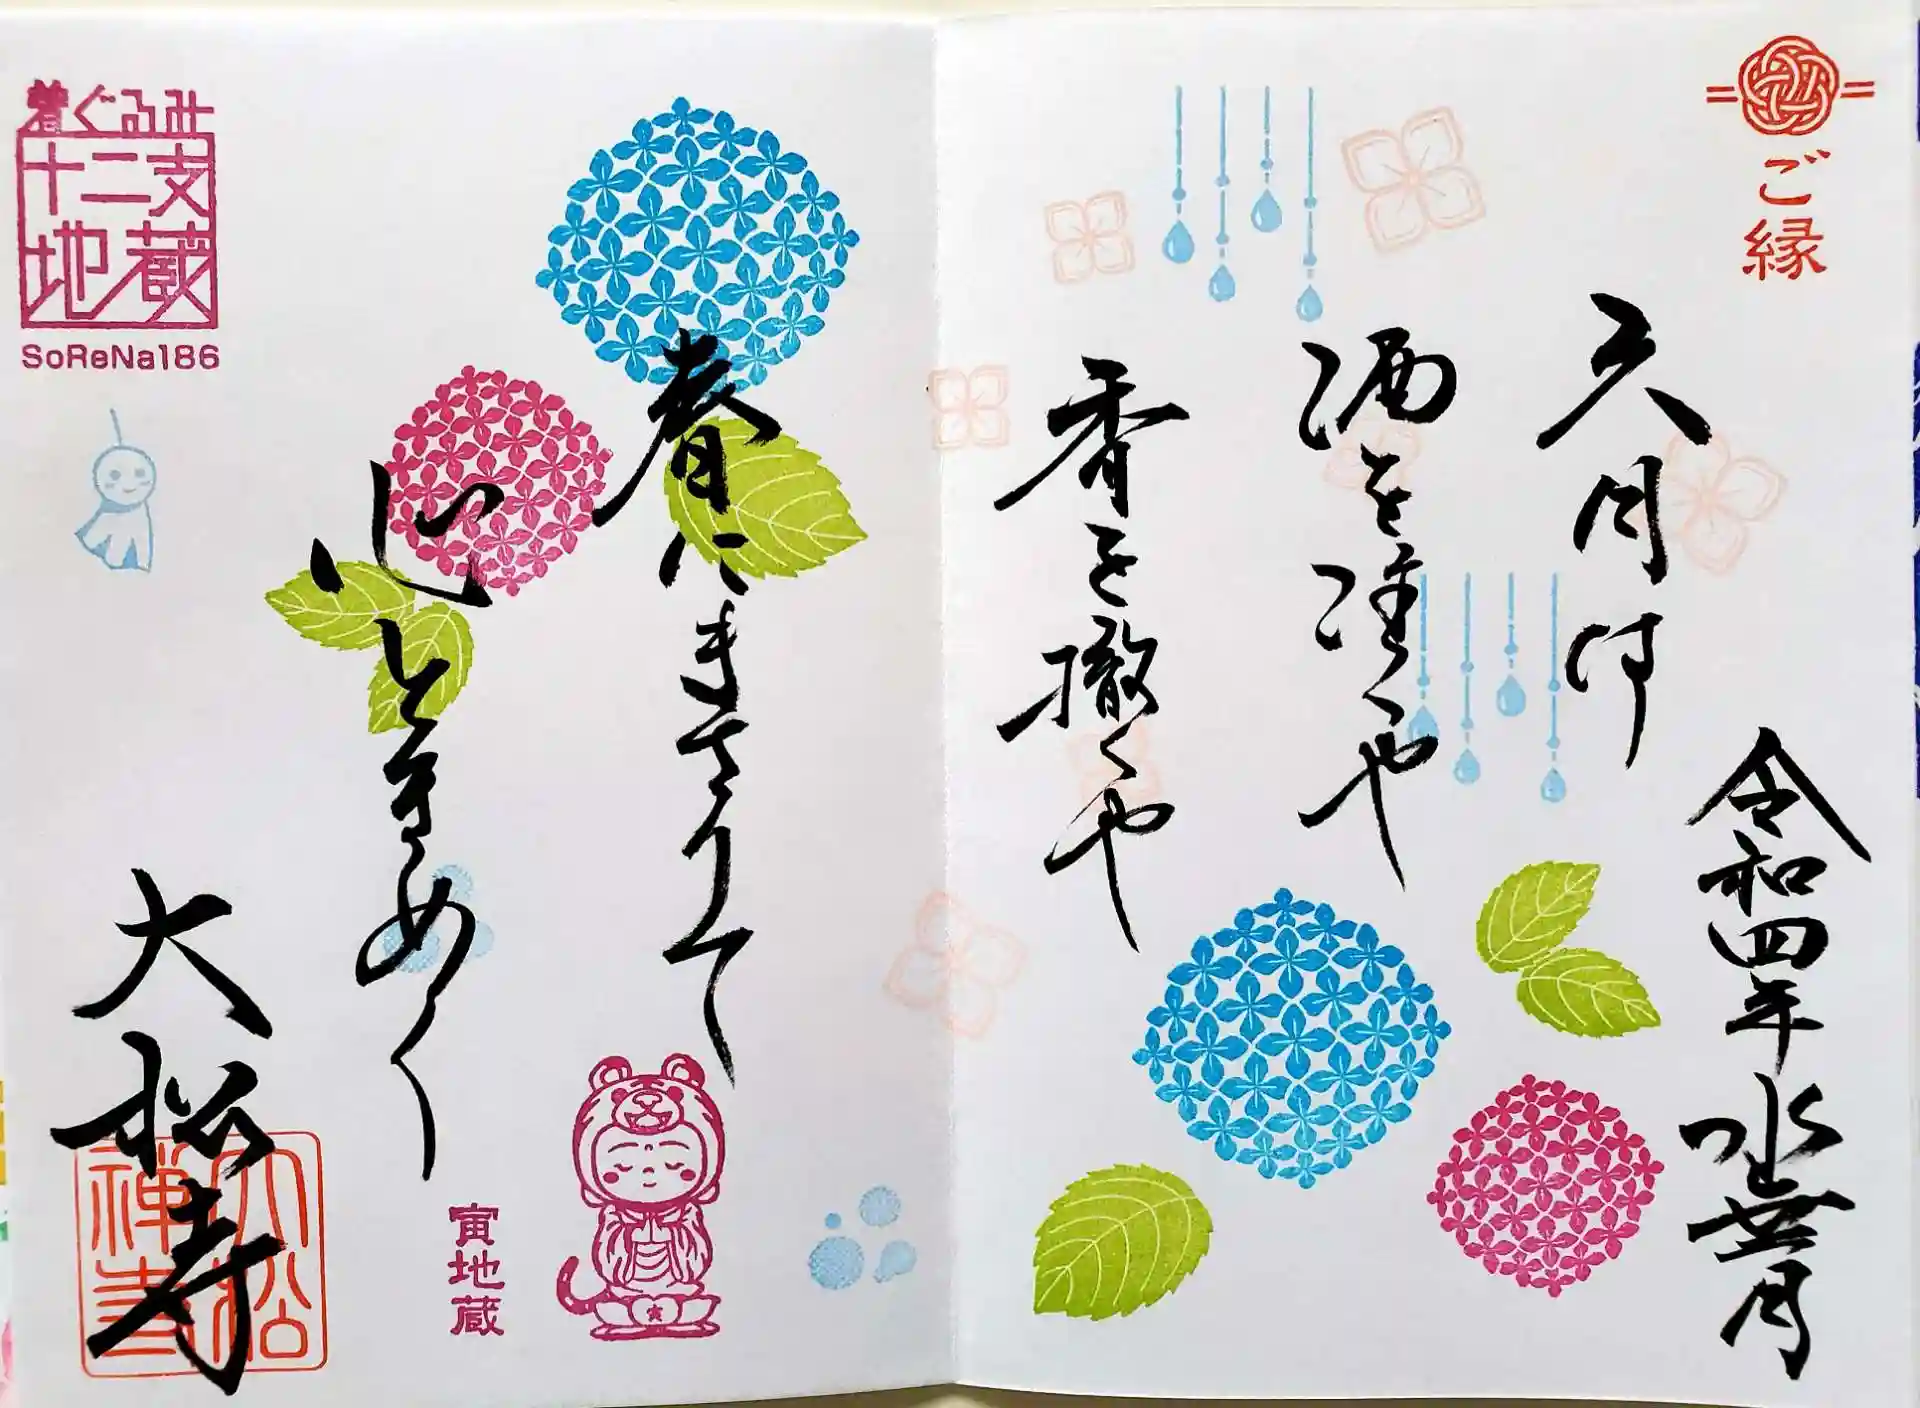 ご縁
令和四年 水無月
六月は
酒を注くや
香を撒くや
春にまさりて
心ときめく
大松寺
大松
禅寺
着ぐるみ
十二支
地蔵
SoReNa186
寅地蔵